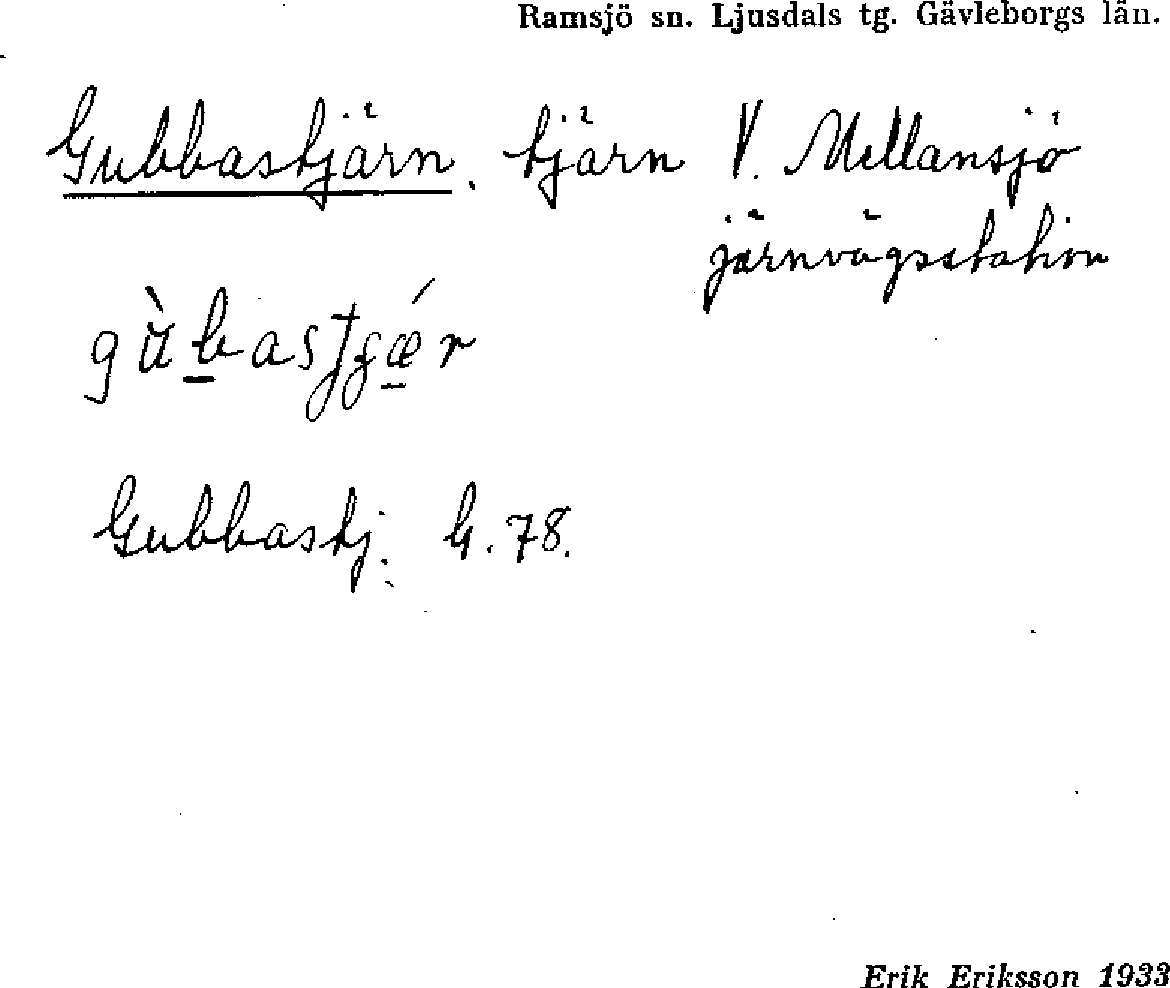 Ramsjö sn. Ljusdals tg. Gävleborgs län.
Gubbastjärn. tjärn V. Mellansjö
järnvägsstation
Gubbastj. G. 78.
Erik Eriksson 1933